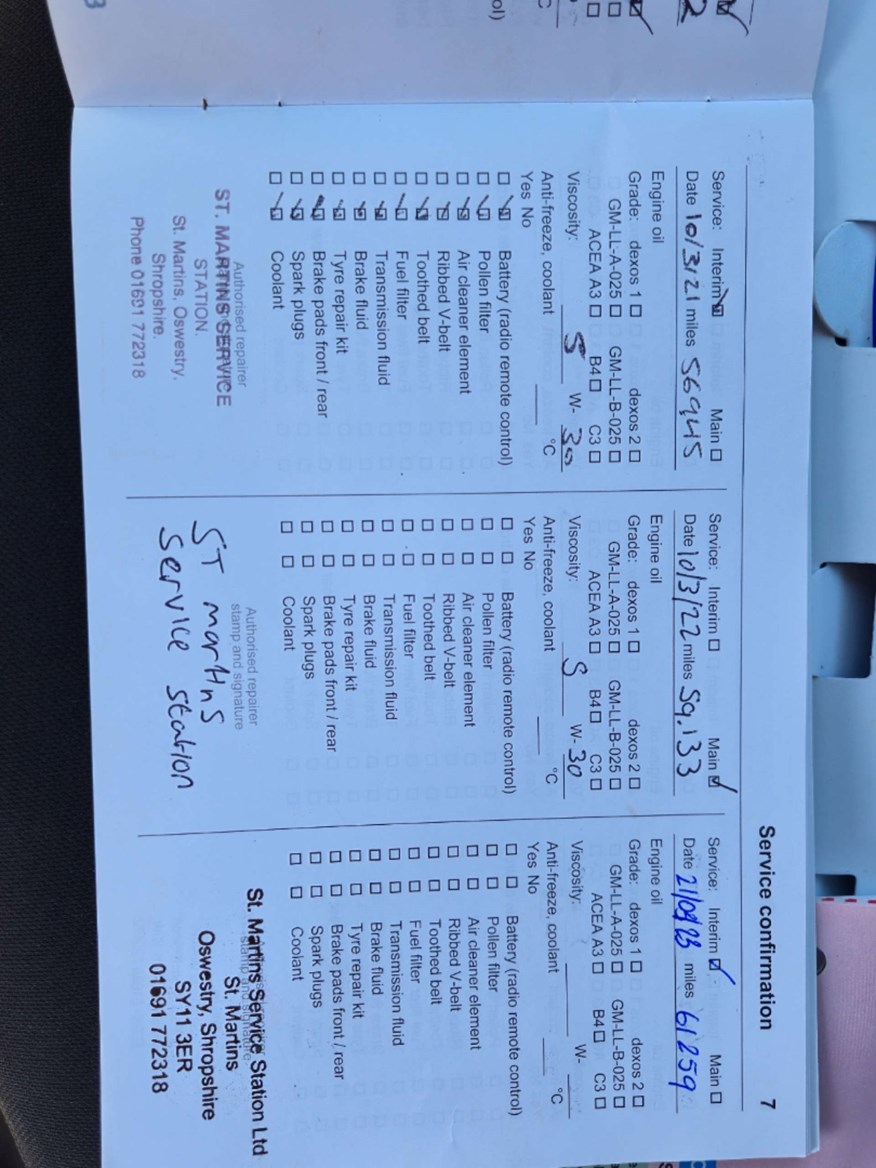 Service confirmation 7
Service: Interim ☑ Main ☐
Date 10/3/21 miles 56945
Engine oil
Grade: dexos 1 ☐ dexos 2 ☐
GM-LL-A-025 ☐ GM-LL-B-025 ☐
ACEA A3 ☐ B4 ☐ C3 ☐
Viscosity: 5 W- 30
Anti-freeze, coolant °C
Yes No
☐ ☑ Battery (radio remote control)
☐ ☑ Pollen filter
☐ ☑ Air cleaner element
☐ ☑ Ribbed V-belt
☐ ☑ Toothed belt
☐ ☑ Fuel filter
☐ ☑ Transmission fluid
☐ ☑ Brake fluid
☐ ☑ Tyre repair kit
☐ ☑ Brake pads front / rear
☐ ☑ Spark plugs
☐ ☑ Coolant
Authorised repairer
ST. MARTINS SERVICE
STATION.
St. Martins, Oswestry,
Shropshire.
Phone 01691 772318
Service: Interim ☐ Main ☑
Date 10/3/22 miles 59,133
Engine oil
Grade: dexos 1 ☐ dexos 2 ☐
GM-LL-A-025 ☐ GM-LL-B-025 ☐
ACEA A3 ☐ B4 ☐ C3 ☐
Viscosity: 5 W- 30
Anti-freeze, coolant °C
Yes No
☐ ☐ Battery (radio remote control)
☐ ☐ Pollen filter
☐ ☐ Air cleaner element
☐ ☐ Ribbed V-belt
☐ ☐ Toothed belt
☐ ☐ Fuel filter
☐ ☐ Transmission fluid
☐ ☐ Brake fluid
☐ ☐ Tyre repair kit
☐ ☐ Brake pads front / rear
☐ ☐ Spark plugs
☐ ☐ Coolant
Authorised repairer
stamp and signature
ST martins
Service Station
Service: Interim ☑ Main ☐
Date 21/09/23 miles 61259
Engine oil
Grade: dexos 1 ☐ dexos 2 ☐
GM-LL-A-025 ☐ GM-LL-B-025 ☐
ACEA A3 ☐ B4 ☐ C3 ☐
Viscosity: W-
Anti-freeze, coolant °C
Yes No
☐ ☐ Battery (radio remote control)
☐ ☐ Pollen filter
☐ ☐ Air cleaner element
☐ ☐ Ribbed V-belt
☐ ☐ Toothed belt
☐ ☐ Fuel filter
☐ ☐ Transmission fluid
☐ ☐ Brake fluid
☐ ☐ Tyre repair kit
☐ ☐ Brake pads front / rear
☐ ☐ Spark plugs
☐ ☐ Coolant
St. Martins Service Station Ltd
stamp and signature
St. Martins
Oswestry, Shropshire
SY11 3ER
01691 772318